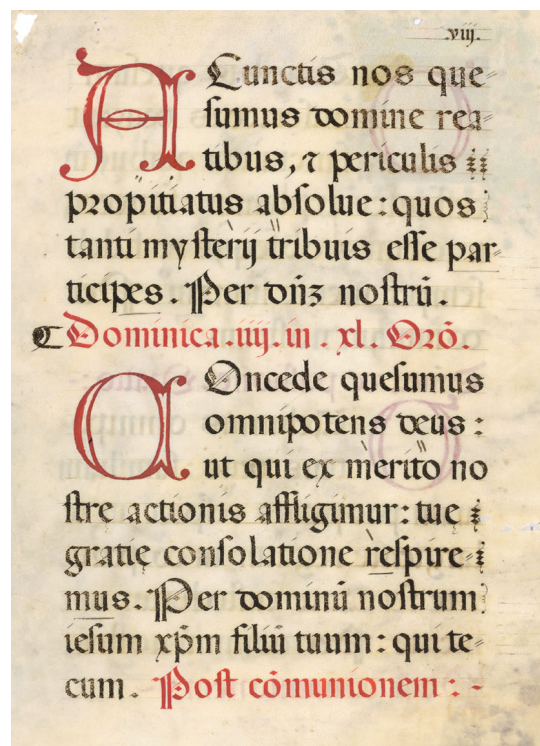 .viij.
A Cunctis nos que-
sumus domine rea-
tibus, ⁊ periculis
propitiatus absolue: quos
tanti mysterij tribuis esse par-
ticipes. Per dñʒ nostrũ.
Dominica .iiij. in . xl. Orõ.
COncede quesumus
omnipotens deus:
ut qui ex merito no
strę actionis affligimur: tuę
gratię consolatione respire-
mus. Per dominũ nostrum
iesum xp̃m filiũ tuum: qui te-
cum. Post cõmunionem: -